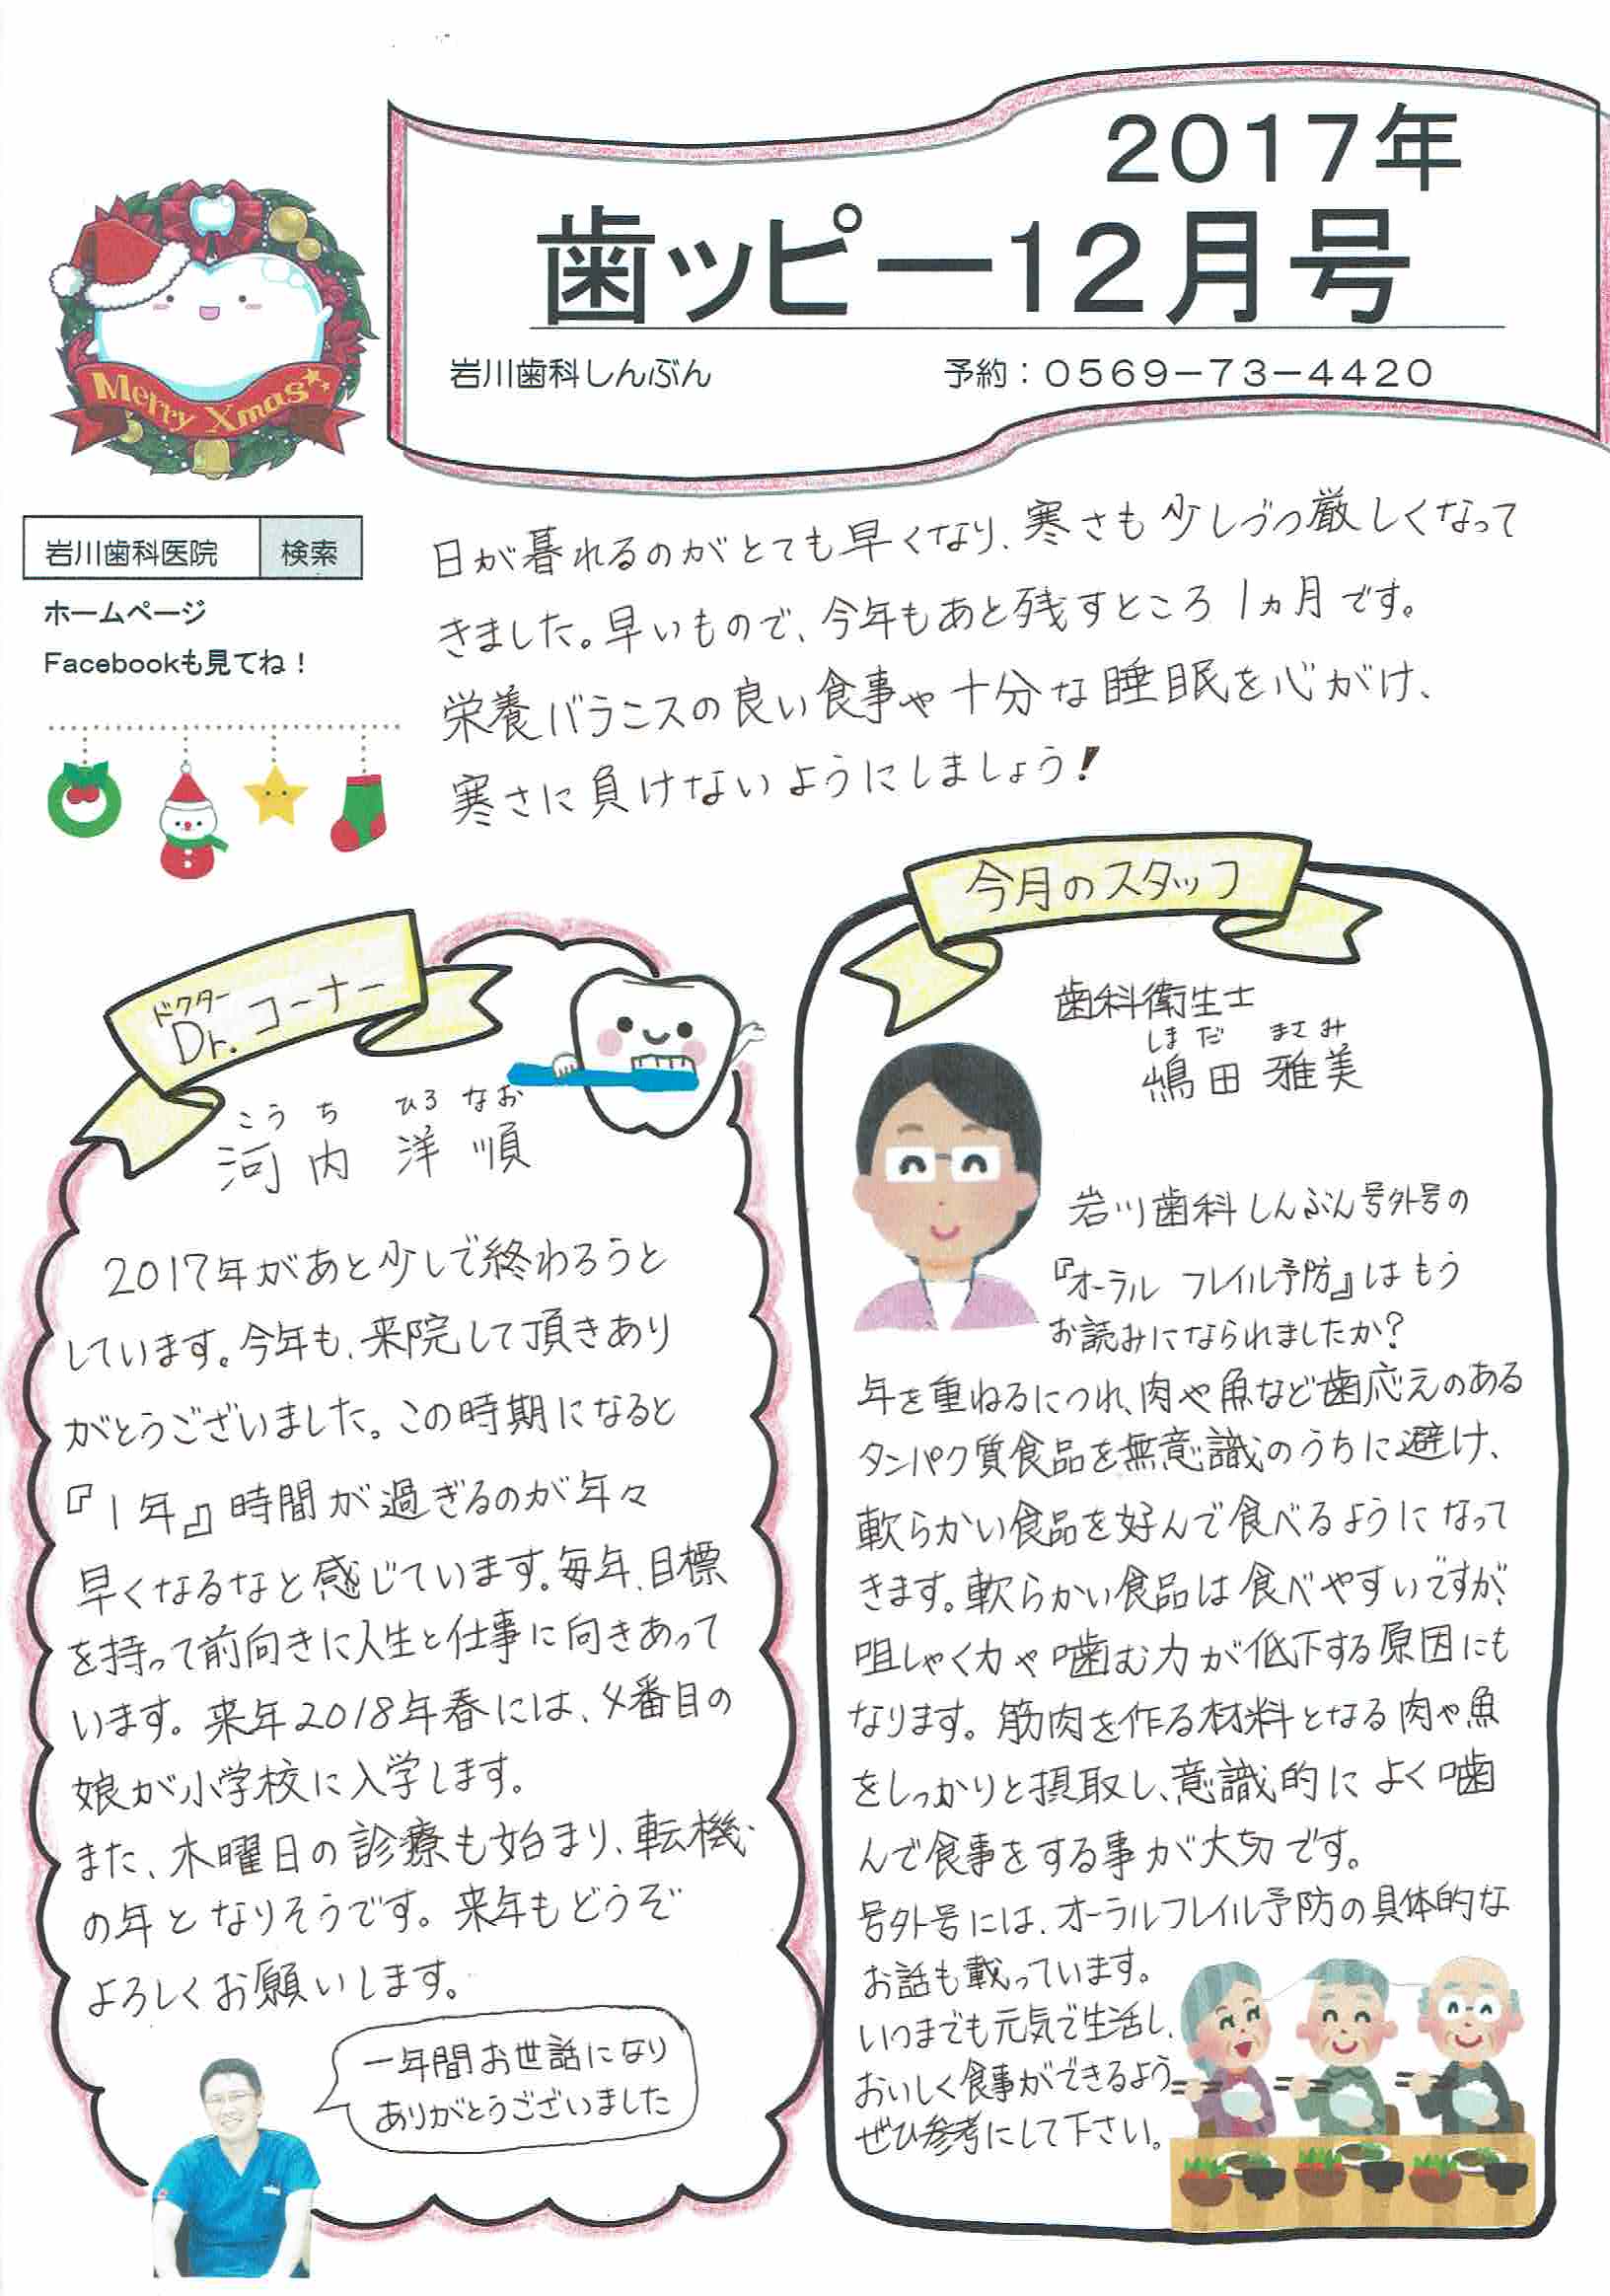 2017年
歯ッピー12月号
岩川歯科しんぶん
予約：0569－73－4420
Merry Xmas
岩川歯科医院 検索
ホームページ
Facebookも見てね！
日が暮れるのがとても早くなり、寒さも少しづつ厳しくなって
きました。早いもので、今年もあと残すところ1ヵ月です。
栄養バランスの良い食事や十分な睡眠を心がけ、
寒さに負けないようにしましょう！
ドクター
Dr.コーナー
こうち ひろなお
河内 洋順
2017年があと少しで終わろうと
しています。今年も、来院して頂きあり
がとうございました。この時期になると
『1年』時間が過ぎるのが年々
早くなるなと感じています。毎年、目標
を持って前向きに人生と仕事に向きあって
います。来年2018年春には、4番目の
娘が小学校に入学します。
また、木曜日の診療も始まり、転機
の年となりそうです。来年もどうぞ
よろしくお願いします。
一年間お世話になり
ありがとうございました
今月のスタッフ
歯科衛生士
しまだ まさみ
嶋田 雅美
岩川歯科しんぶん号外号の
『オーラル フレイル予防』はもう
お読みになられましたか？
年を重ねるにつれ、肉や魚など歯応えのある
タンパク質食品を無意識のうちに避け、
軟らかい食品を好んで食べるようになって
きます。軟らかい食品は食べやすいですが、
咀しゃく力や噛む力が低下する原因にも
なります。筋肉を作る材料となる肉や魚
をしっかりと摂取し、意識的によく噛
んで食事をする事が大切です。
号外号には、オーラルフレイル予防の具体的な
お話も載っています。
いつまでも元気で生活し、
おいしく食事ができるよう
ぜひ参考にして下さい。